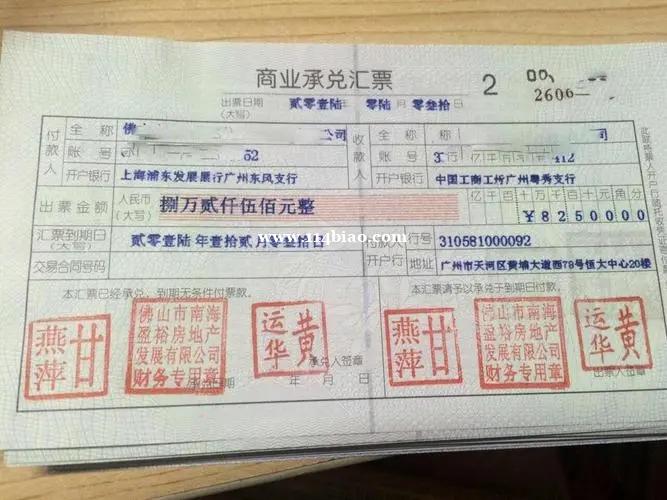 商业承兑汇票 2 00
2606
出票日期 贰零壹陆 年 零陆 月 零叁拾 日
(大写)
付款人 全称 佛 公司 收款人 全称 司
账号 52 账号 412
开户银行 上海浦东发展银行广州东风支行 开户银行 中国工商工所广州粤秀支行
出票金额 人民币 捌万贰仟伍佰元整 亿千百十万千百十元角分
(大写) ¥8250000
汇票到期日 贰零壹陆 年壹拾贰月零叁拾日 付款人 行号 310581000092
(大写)
交易合同号码 开户行 地址 广州市天河区黄埔大道西78号恒大中心20楼
www.114biao.com
本汇票已经承兑,到期无条件付票款。 本汇票请予以承兑于到期日付款。
甘燕萍 佛山市南海盈裕房地产发展有限公司财务专用章 黄运华 甘燕萍 佛山市南海盈裕房地产发展有限公司财务专用章 黄运华
承兑人签章
承兑日期 年 月 日 出票人签章